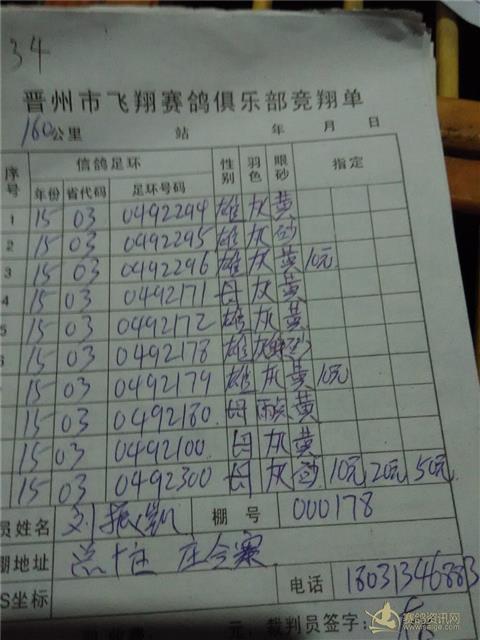 34
晋州市飞翔赛鸽俱乐部竞翔单
160公里 站 年 月 日
序号 信鸽足环 性别 羽色 眼砂 指定
年份 省代码 足环号码
1 15 03 0492294 雄 灰 黄
2 15 03 0492295 雄 灰 砂
3 15 03 0492296 雄 灰 黄 10元
4 15 03 0492171 母 灰 黄
5 15 03 0492172 雄 灰 黄
15 03 0492178 雄 灰 砂
15 03 0492179 雄 灰 黄 10元
15 03 0492180 母 黄
15 03 0492100 母 灰 黄
15 03 0492300 母 灰 砂 10元 20元 50元
员姓名 刘振凯 棚号 000178
棚地址
S坐标 电话 18031346883
元 裁判员签字:
赛鸽资讯网
www.saige.com